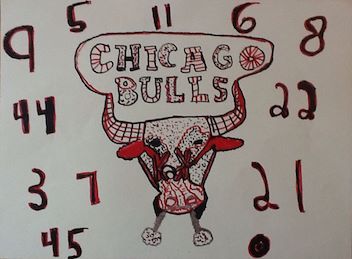 9 5 11 6 8
CHICAGO
BULLS
44 22
3 7 21
45 0